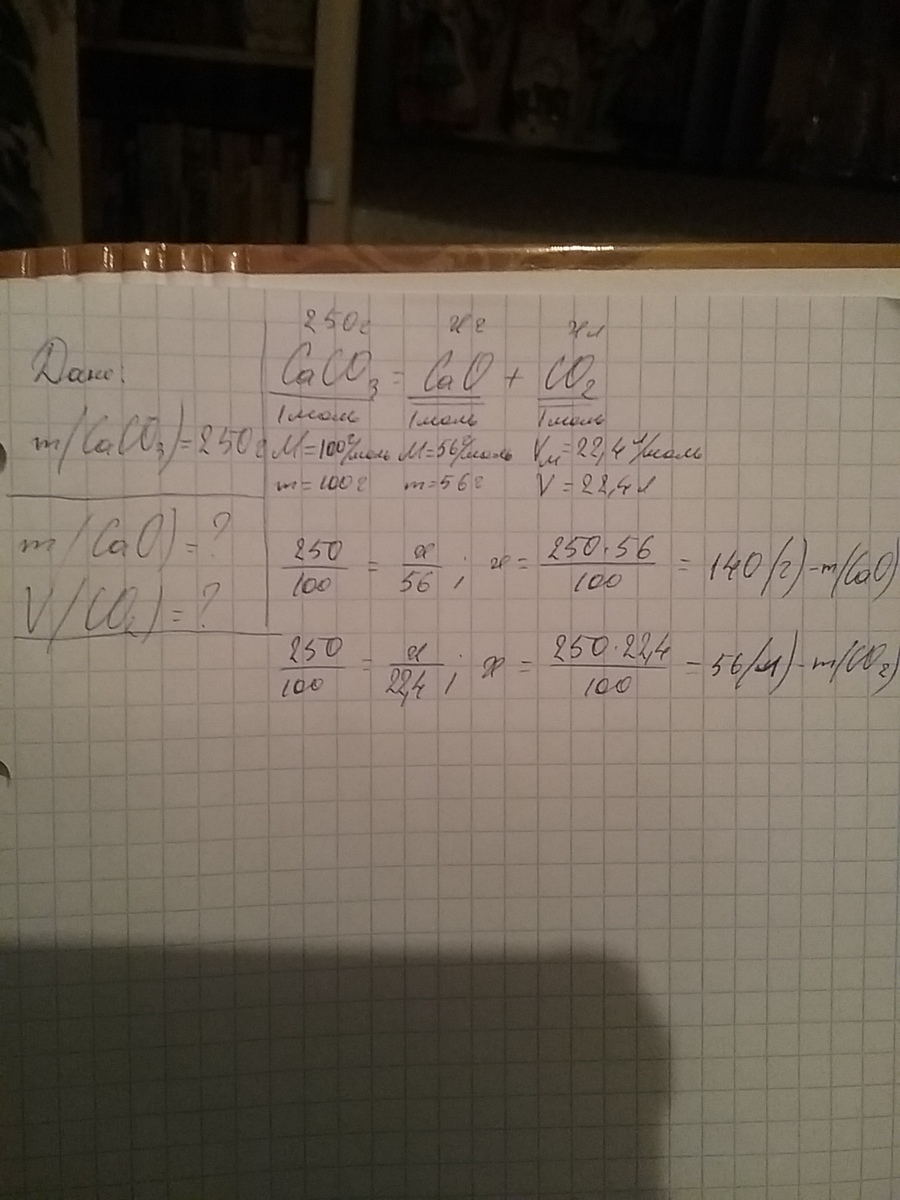 Дано:
m(CaCO₃)=250г
m(CaO)=?
V(CO₂)=?
250г xг xл
CaCO₃ = CaO + CO₂
1моль 1моль 1моль
M=100г/моль M=56г/моль Vм=22,4л/моль
m=100г m=56г V=22,4л
250/100 = x/56 ; x = 250·56/100 = 140(г)-m(CaO)
250/100 = x/22,4 ; x = 250·22,4/100 = 56(л)-m(CO₂)